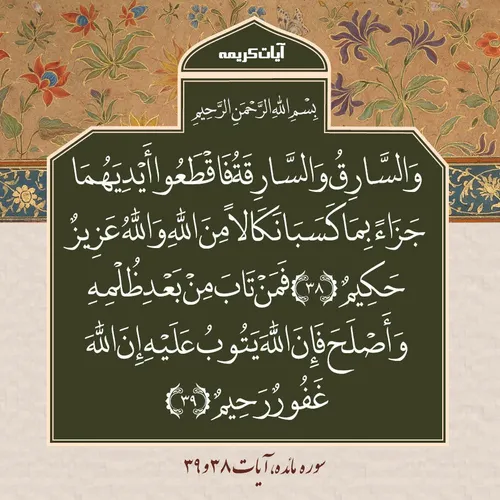 آیات کریمه
بِسْمِ اللهِ الرَّحْمَنِ الرَّحِيمِ
وَالسَّارِقُ وَالسَّارِقَةُ فَاقْطَعُوا أَيْدِيَهُمَا
جَزَاءً بِمَا كَسَبَا نَكَالاً مِنَ اللهِ وَاللهُ عَزِيزٌ
حَكِيمٌ ﴿۳۸﴾ فَمَنْ تَابَ مِنْ بَعْدِ ظُلْمِهِ
وَأَصْلَحَ فَإِنَّ اللهَ يَتُوبُ عَلَيْهِ إِنَّ اللهَ
غَفُورٌ رَحِيمٌ ﴿۳۹﴾
سوره مائده، آیات ۳۸ و ۳۹